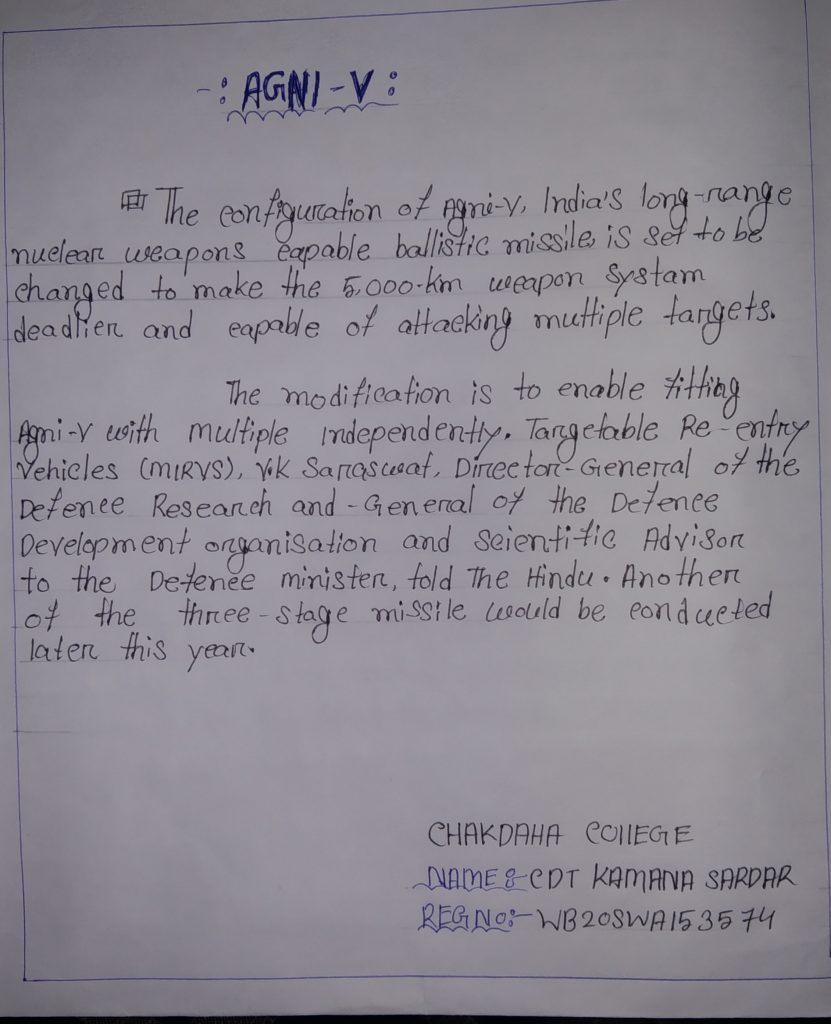 -: AGNI-V :
The configuration of Agni-V, India's long-range
nuclear weapons capable ballistic missile, is set to be
changed to make the 5,000-km weapon systam
deadlier and capable of attacking multiple targets.
The modification is to enable fitting
Agni-V with multiple Independently. Targetable Re-entry
Vehicles (MIRVS), V.K Saraswat, Director-General of the
Defence Research and -General of the Defence
Development organisation and Scientific Advisor
to the Defence minister, told The Hindu. Another
of the three-stage missile would be conducted
later this year.
CHAKDAHA COllEGE
NAME:- CDT KAMANA SARDAR
REG NO:- WB20SWA153574